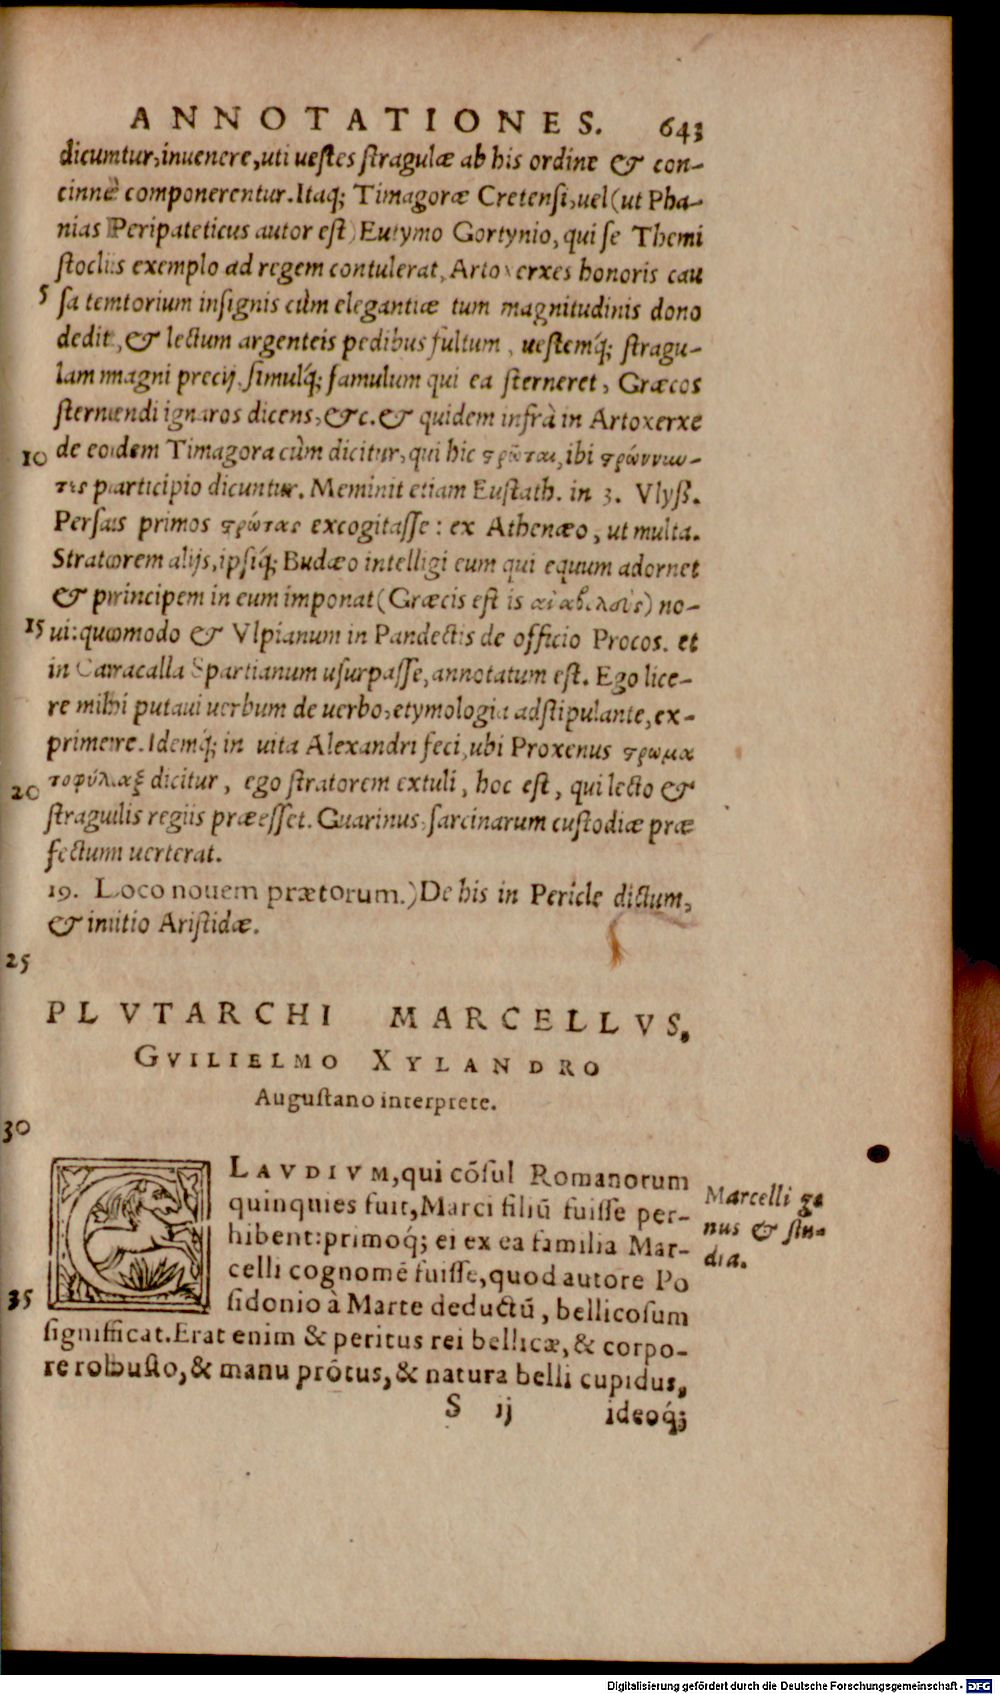 ANNOTATIONES. 643
dicuntur, inuenere, uti uestes stragulæ ab his ordine & con-
cinnè componerentur. Itaq; Timagoræ Cretensi, uel (ut Pha-
nias Peripateticus autor est) Eutymo Gortynio, qui se Themi
stoclis exemplo ad regem contulerat, Artoxerxes honoris cau
5 sa temtorium insignis cùm elegantiæ tum magnitudinis dono
dedit, & lectum argenteis pedibus fultum, uestemq́; stragu-
lam magni precij, simulq́; famulum qui ea sterneret, Græcos
sternendi ignaros dicens, &c. & quidem infrà in Artoxerxe
10 de eodem Timagora cùm dicitur, qui hic ςρῶται, ibi ςρώννυω-
τες participio dicuntur. Meminit etiam Eustath. in 3. Vlyß.
Persas primos ςρώτας excogitasse: ex Athenæo, ut multa.
Stratorem alijs, ipsiq́; Budæo intelligi eum qui equum adornet
& principem in eum imponat (Græcis est is) no-
15 ui: quomodo & Vlpianum in Pandectis de officio Procos. et
in Carracalla Spartianum usurpasse, annotatum est. Ego lice-
re mihi putaui uerbum de uerbo, etymologia adstipulante, ex-
primere. Idemq́; in uita Alexandri feci, ubi Proxenus ςρωμα
20 τοφύλαξ dicitur, ego stratorem extuli, hoc est, qui lecto &
stragulis regiis præesset. Guarinus, sarcinarum custodiæ præ
fectum uerterat.
19. Loco nouem prætorum.) De his in Pericle dictum,
& initio Aristidæ.
25
PLVTARCHI MARCELLVS,
GVILIELMO XYLANDRO
Augustano interprete.
30
CLAVDIVM, qui cõsul Romanorum
quinquies fuit, Marci filiũ fuisse per-
hibent: primoq́; ei ex ea familia Mar-
celli cognomẽ fuisse, quod autore Po
35 sidonio à Marte deductũ, bellicosum
significat. Erat enim & peritus rei bellicæ, & corpo-
re robusto, & manu prõtus, & natura belli cupidus,
S ij ideoq́;
Marcelli ge
nus & stu-
dia.
Digitalisierung gefördert durch die Deutsche Forschungsgemeinschaft - DFG